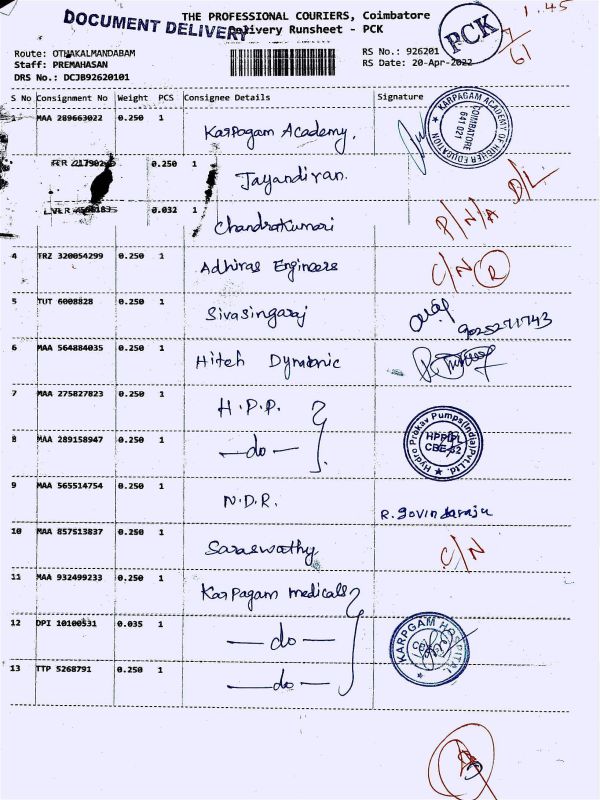 DOCUMENT DELIVERY
THE PROFESSIONAL COURIERS, Coimbatore
Delivery Runsheet - PCK
PCK
1.45
61
Route: OTHAKALMANDABAM
Staff: PREMAHASAN
DRS No.: DCJB92620101
RS No.: 926201
RS Date: 20-Apr-2022
S No Consignment No Weight PCS Consignee Details Signature
1 MAA 289663022 0.250 1 Karpagam Academy.
KARPAGAM ACADEMY OF HIGHER EDUCATION
COIMBATORE
641 021
0.250 1 Jayandiran. D/L
0.032 1 Chandrakumari P/N/A
4 TRZ 320054299 0.250 1 Adhiras Engineers C/N R
5 TUT 6008828 0.250 1 Sivasingaraj
9025271743
6 MAA 564884035 0.250 1 Hitech Dynamic
7 MAA 275827823 0.250 1 H.P.P.
8 MAA 289158947 0.250 1 —do—
Hydro Prokav Pumps(India)Pvt.Ltd.
HPPIPL
CBE-62
9 MAA 565514754 0.250 1 N.D.R. R. Govindaraju
10 MAA 857513837 0.250 1 Saraswathy C/N
11 MAA 932499233 0.250 1 Karpagam medicals
12 DPI 10100531 0.035 1 —do—
13 TTP 5268791 0.250 1 —do—
KARPGAM HOSPITAL